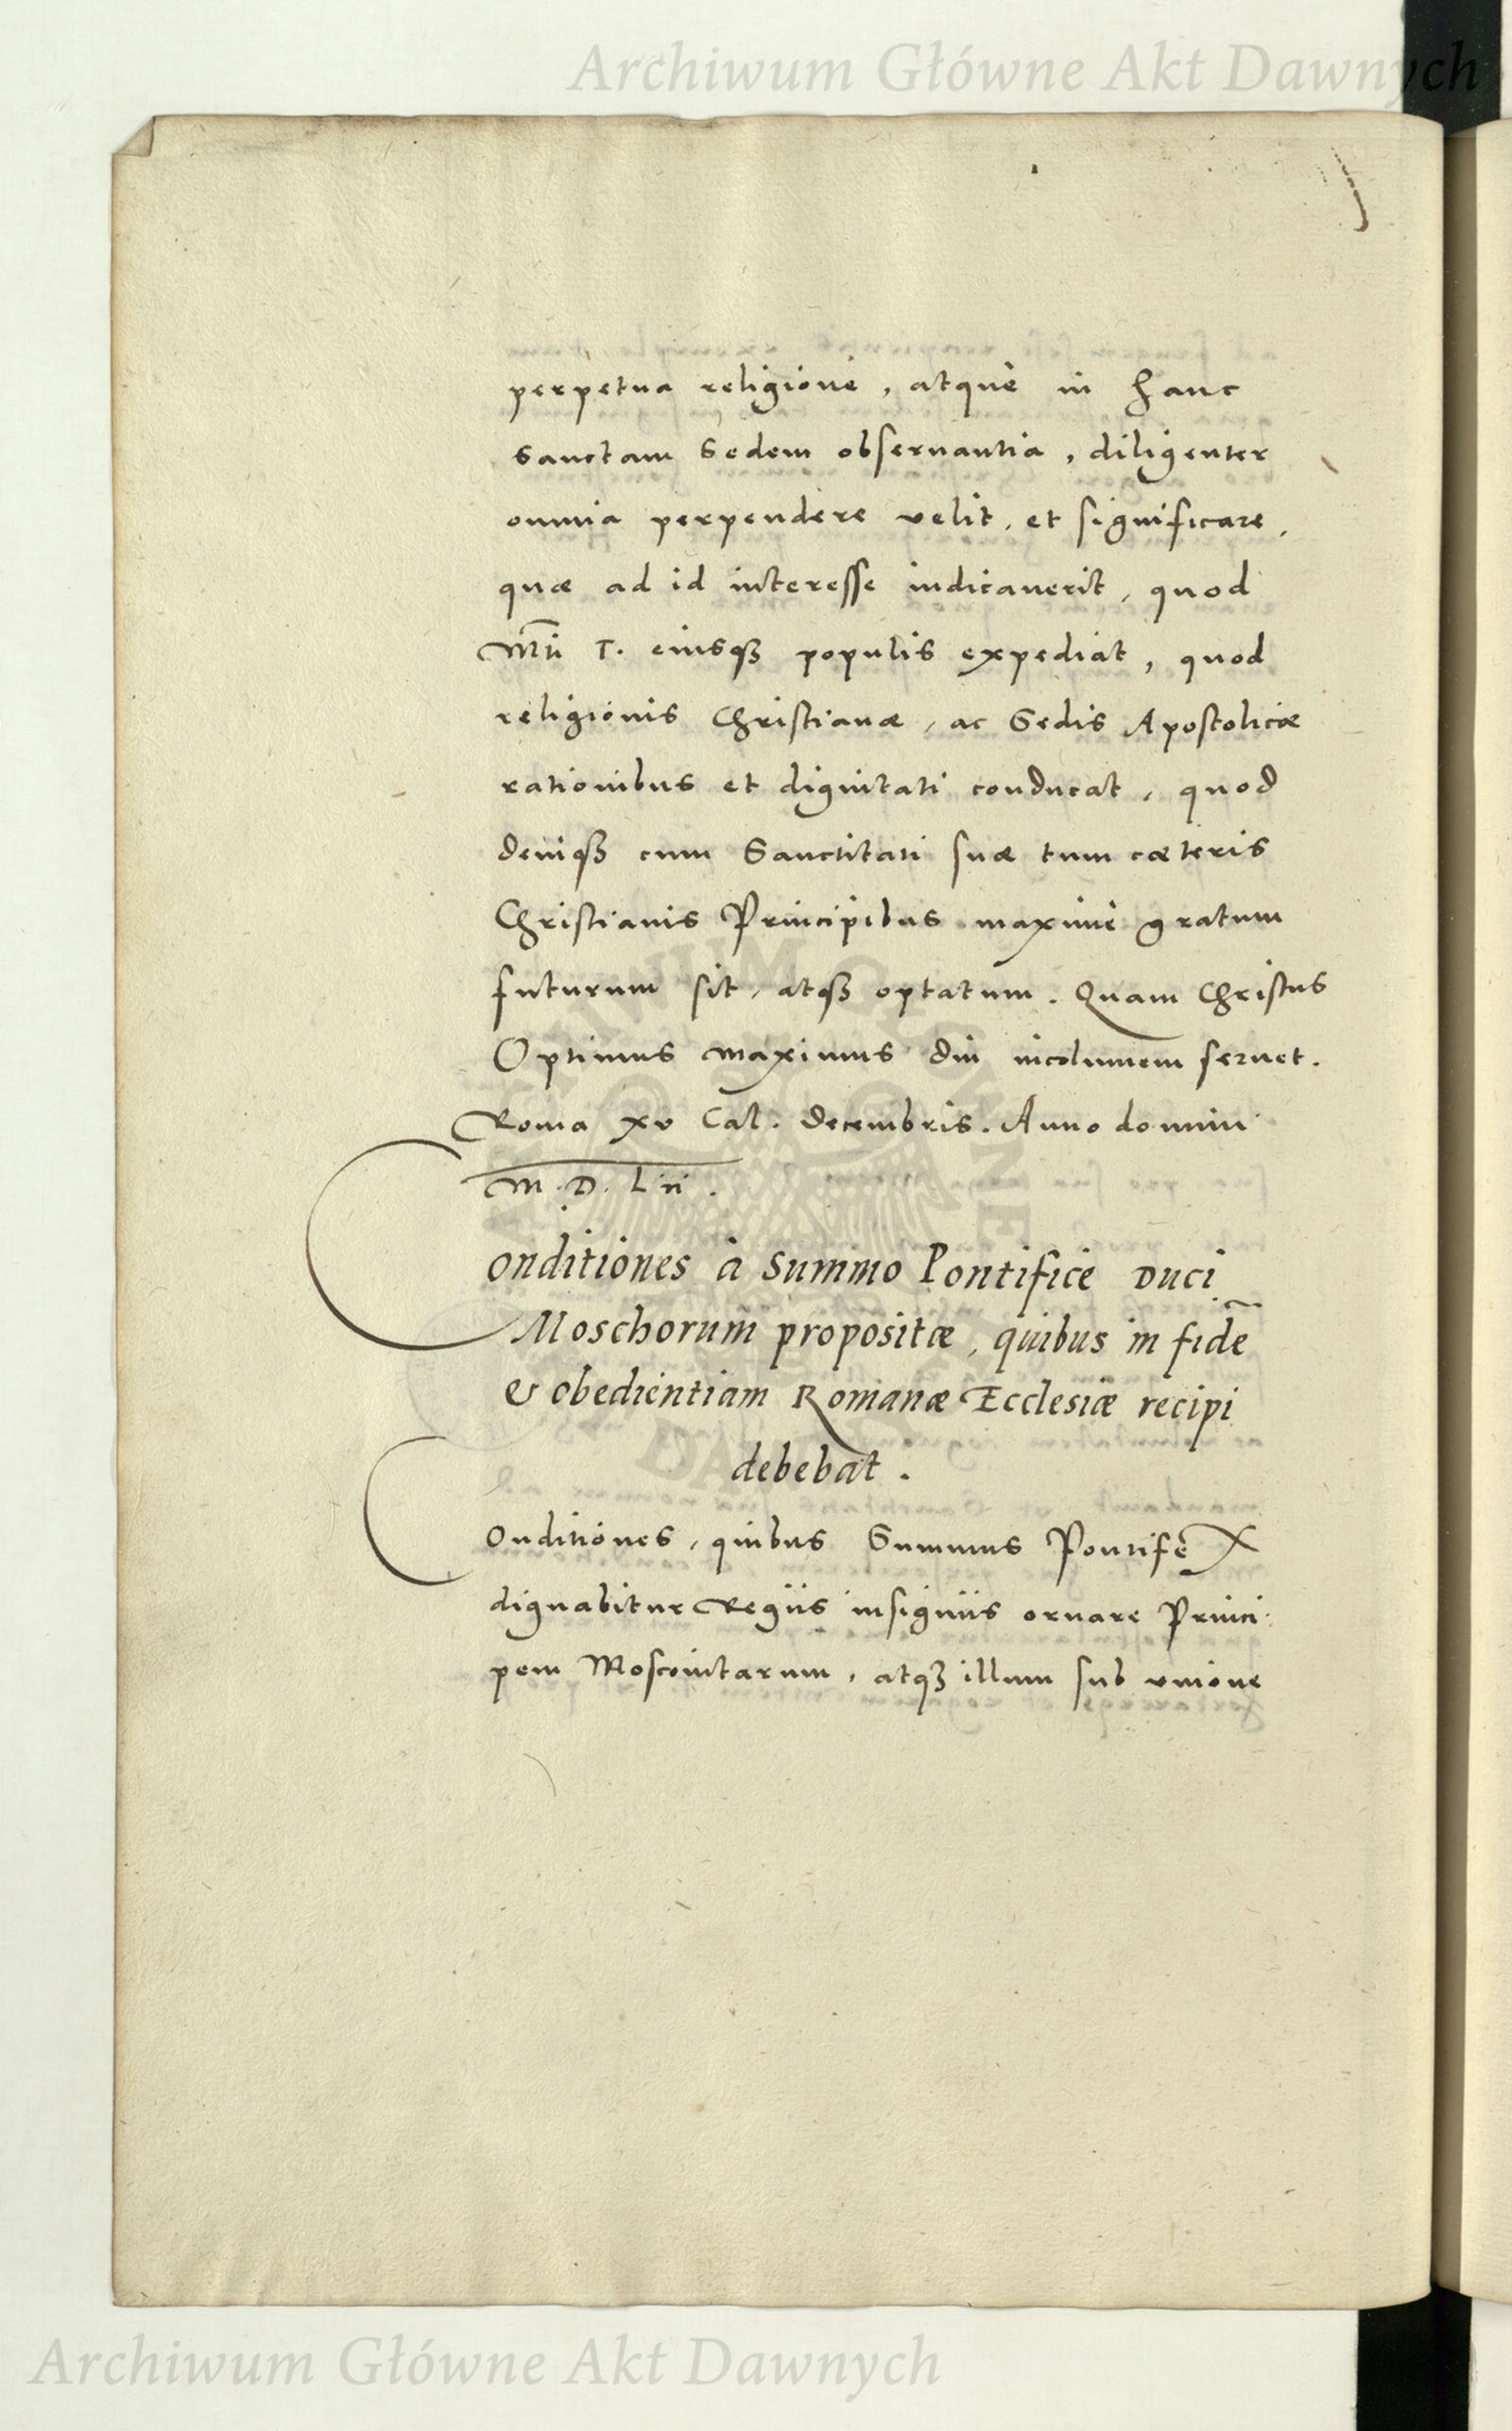 Archiwum Główne Akt Dawnych
perpetua religione, atque in hanc
sanctam Sedem obseruantia, diligenter
omnia perpendere velit, et significare,
quæ ad id interesse iudicauerit, quod
Mti T. eiusqȝ populis expediat, quod
religionis Christianæ, ac Sedis Apostolicæ
rationibus et dignitati conducat, quod
deniqȝ cum Sanctitati suæ tum cæteris
Christianis Principibus maxime gratum
futurum sit, atqȝ optatum. Quam Christus
Optimus Maximus diu incolumem seruet.
Roma xv Cal. decembris. Anno domini
M. D. Lii.
Conditiones à Summo Pontifice Duci
Moschorum propositæ, quibus in fidē
& obedientiam Romanæ Ecclesiæ recipi
debebat.
Conditiones, quibus Summus Pontifex
dignabitur Regiis insigniis ornare Princi:
pem Moscouitarum, atqȝ illum sub vnione
Archiwum Główne Akt Dawnych